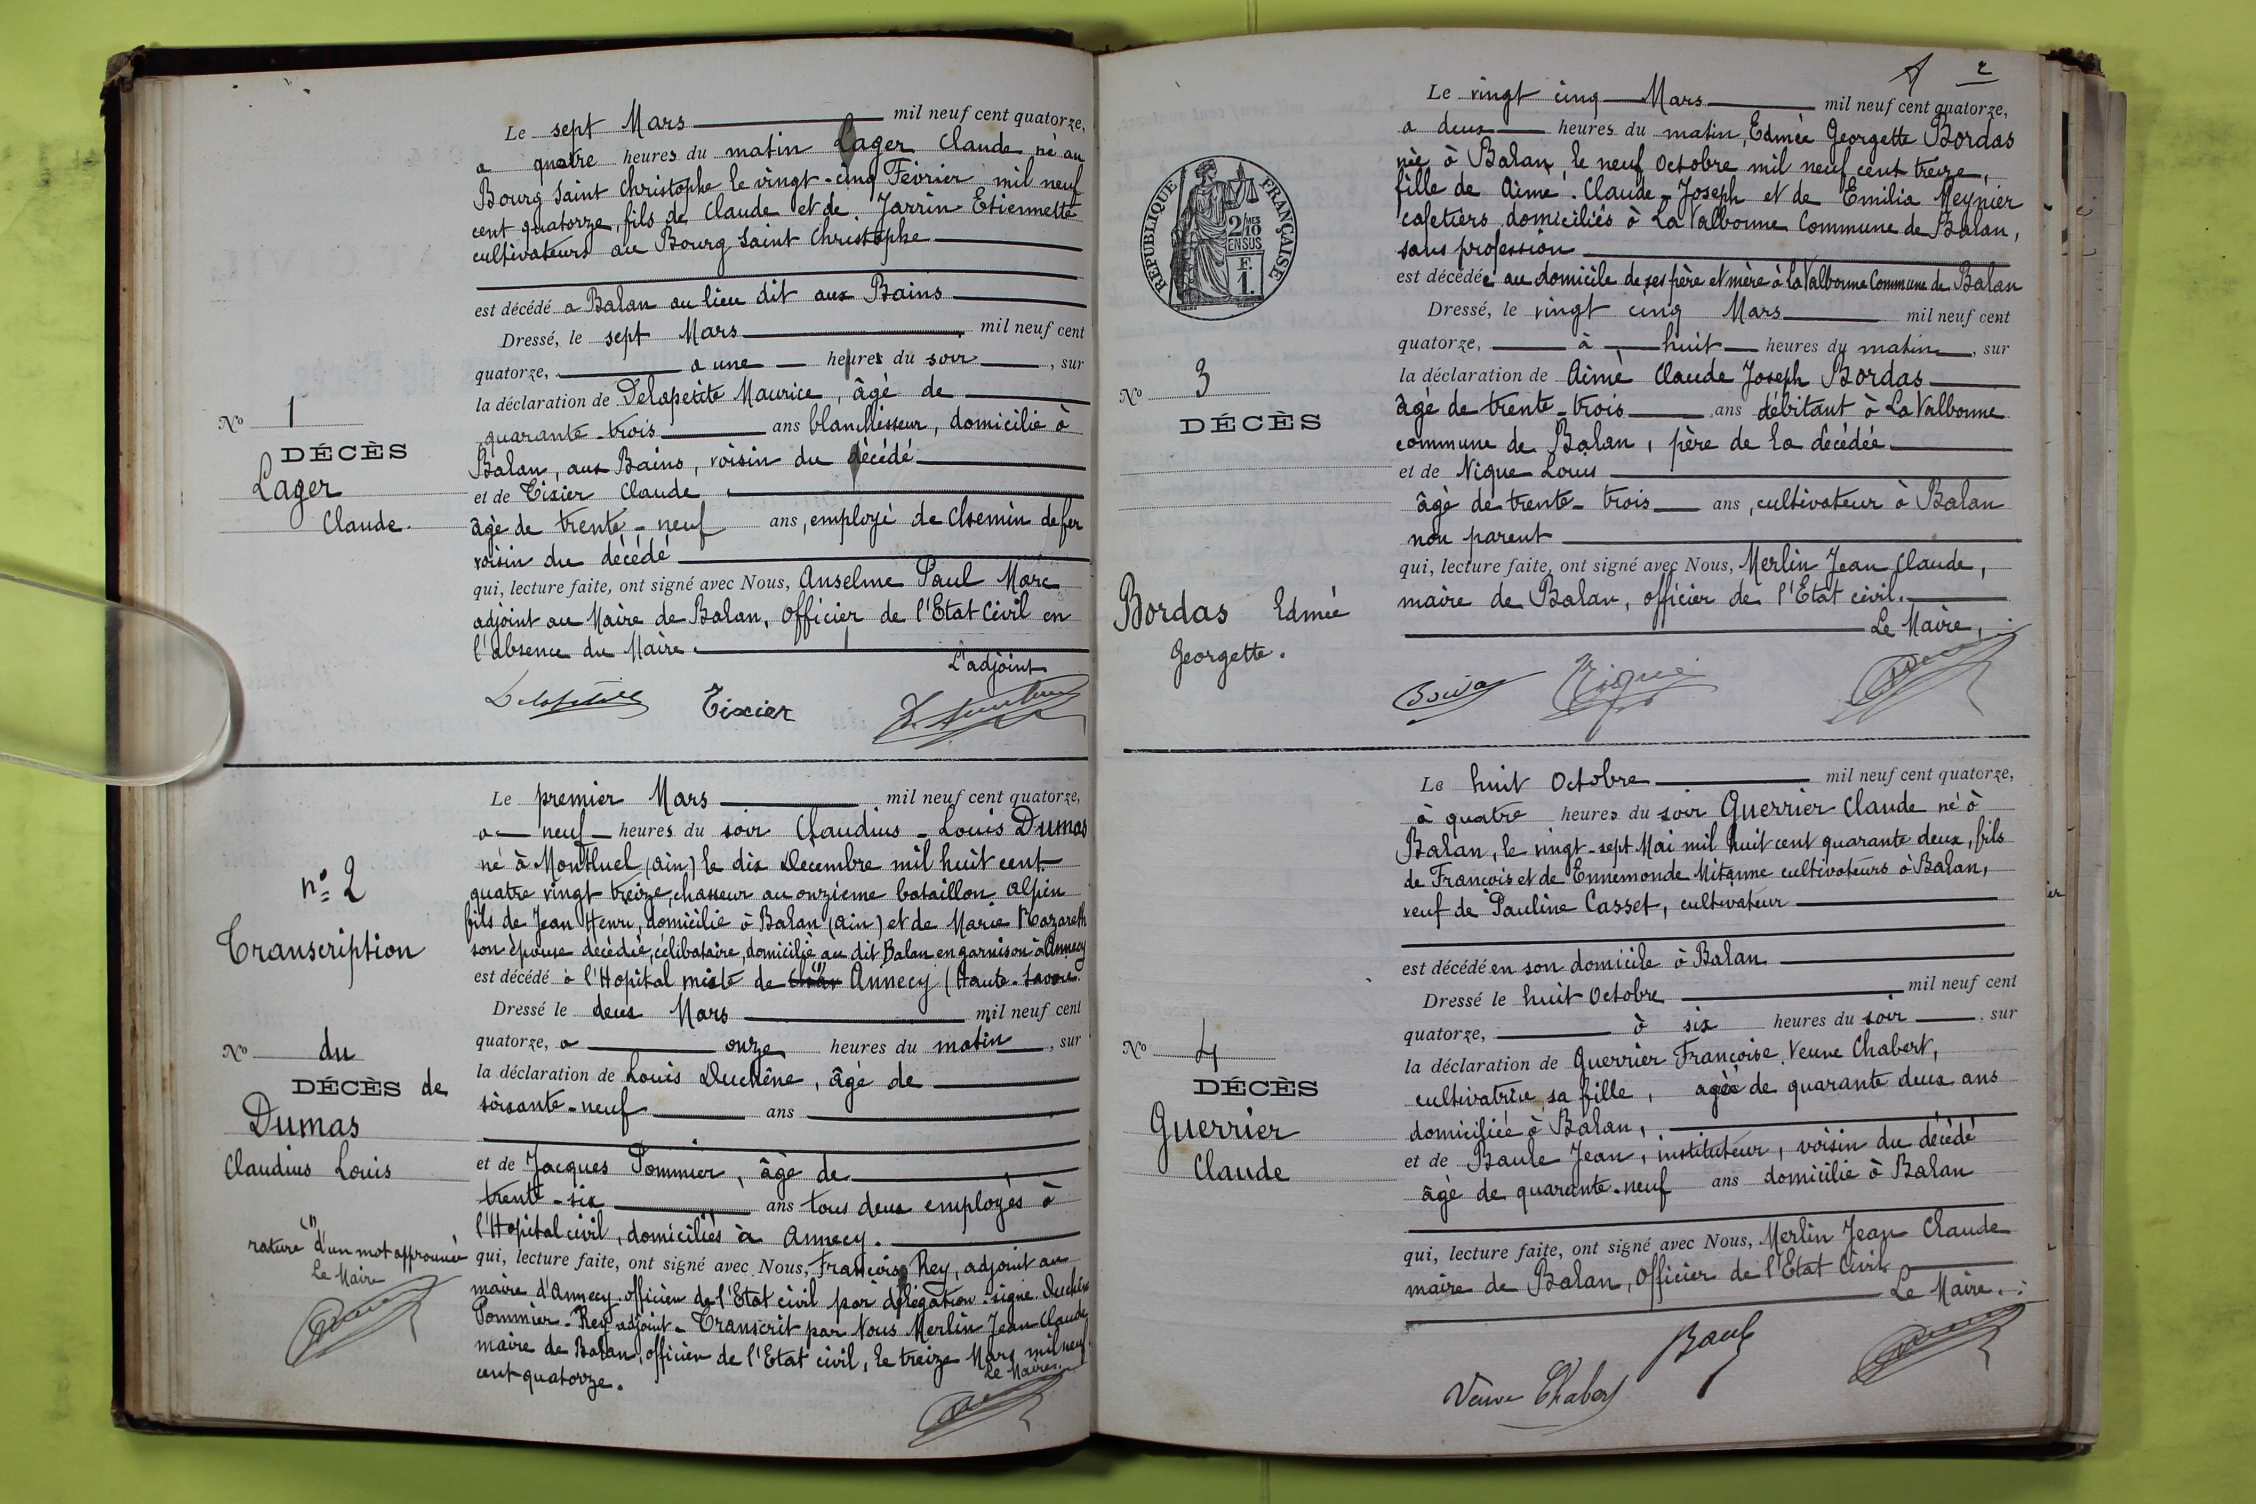 Le sept Mars mil neuf cent quatorze,
a quatre heures du matin Lager Claude né au
Bourg Saint Christophe le vingt-cinq Février mil neuf
cent quatorze, fils de Claude et de Jarrin Etiennette
cultivateurs au Bourg Saint Christophe
est décédé a Balan au lieu dit aux Bains
Dressé, le sept Mars mil neuf cent
quatorze, a une heures du soir, sur
la déclaration de Delapetite Maurice, âgé de
quarante-trois ans blanchisseur, domicilié à
Balan, aux Bains, voisin du décédé
et de Tixier Claude,
âgé de trente-neuf ans, employé de Chemin de fer
voisin du décédé
qui, lecture faite, ont signé avec Nous, Anselme Paul Marc
adjoint au Maire de Balan, Officier de l'Etat Civil en
l'absence du Maire.
L'adjoint
Delapetite Tixier
No 1
DÉCÈS
Lager
Claude.
Le premier Mars mil neuf cent quatorze,
a neuf heures du soir Claudius-Louis Dumas
né à Montluel (ain) le dix Decembre mil huit cent
quatre vingt treize, chasseur au onzième bataillon alpin
fils de Jean Henri, domicilié à Balan (ain) et de Marie Nazareth
son épouse décédée, célibataire, domicilié au dit Balan en garnison à Annecy
est décédé à l'Hopital mixte de Annecy (Haute-Savoie
Dressé le deux Mars mil neuf cent
quatorze, a onze heures du matin, sur
la déclaration de Louis Duchêne, âgé de
soixante-neuf ans
et de Jacques Pommier, âgé de
trente-six ans tous deux employés à
l'Hopital civil, domiciliés à Annecy.
qui, lecture faite, ont signé avec Nous, François Rey, adjoint au
maire d'Annecy. officier de l'Etat civil par délégation. signé. Duchêne
Pommier. Rey adjoint. Transcrit par Nous Merlin Jean Claude
maire de Balan, officier de l'Etat civil, le treize Mars mil neuf
cent quatorze.
Le Maire.
n° 2
Transcription
No du
DÉCÈS de
Dumas
Claudius Louis
rature d'un mot approuvée
Le Maire
2
REPUBLIQUE FRANÇAISE
2/10 EN SUS
F. 1.
Le vingt cinq Mars mil neuf cent quatorze,
a deux heures du matin, Edmée Georgette Bordas
née à Balan, le neuf Octobre mil neuf cent treize,
fille de Aimé-Claude-Joseph et de Emilia Meynier
cafetiers domiciliés à La Valbonne Commune de Balan,
sans profession
est décédée au domicile de ses père et mère à la Valbonne Commune de Balan
Dressé, le vingt cinq Mars mil neuf cent
quatorze, à huit heures du matin, sur
la déclaration de Aimé Claude Joseph Bordas
âgé de trente-trois ans débitant à La Valbonne
commune de Balan, père de la décédée
et de Nique Louis
âgé de trente-trois ans, cultivateur à Balan
non parent
qui, lecture faite, ont signé avec Nous, Merlin Jean Claude,
maire de Balan, officier de l'Etat civil.
Le Maire,
Nique
No 3
DÉCÈS
Bordas Edmée
Georgette.
Le huit Octobre mil neuf cent quatorze,
à quatre heures du soir Guerrier Claude né à
Balan, le vingt-sept Mai mil huit cent quarante deux, fils
de François et de Ennemonde Mitanne cultivateurs à Balan,
veuf de Pauline Casset, cultivateur
est décédé en son domicile à Balan
Dressé le huit Octobre mil neuf cent
quatorze, à six heures du soir, sur
la déclaration de Guerrier Françoise, Veuve Chabert,
cultivatrice, sa fille, agée de quarante deux ans
domiciliée à Balan,
et de Baule Jean, instituteur, voisin du décédé
âgé de quarante-neuf ans domicilié à Balan
qui, lecture faite, ont signé avec Nous, Merlin Jean Claude
maire de Balan, Officier de l'Etat Civil.
Le Maire.
Baule
Veuve Chabert
No 4
DÉCÈS
Guerrier
Claude